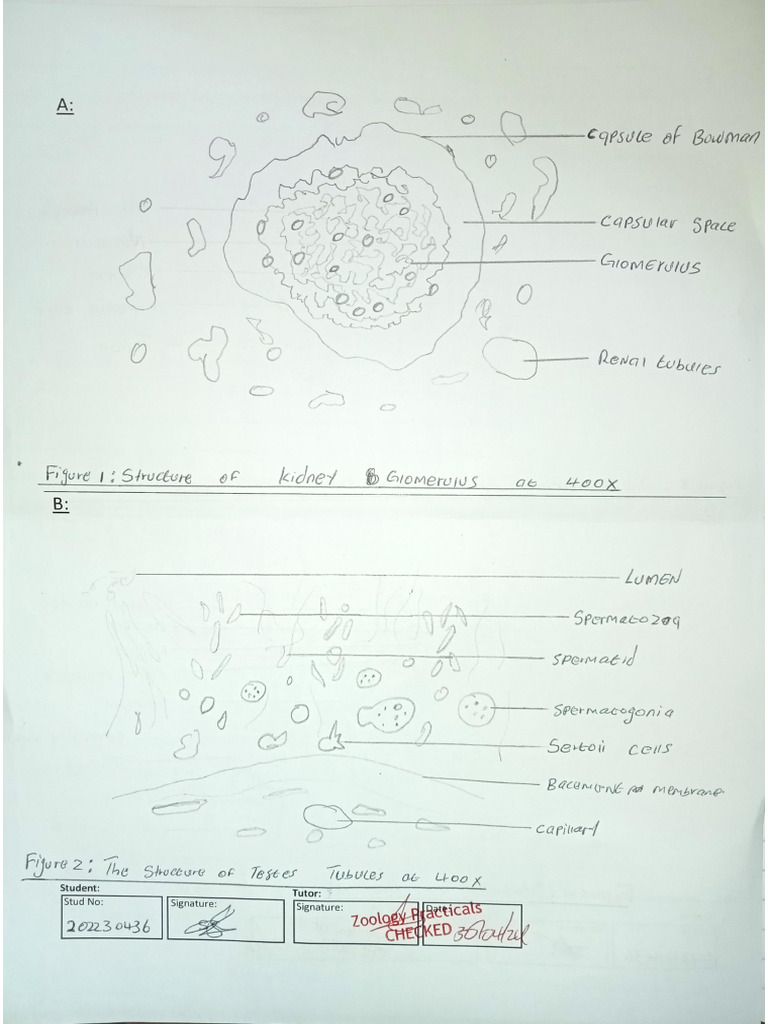 A:
Capsule of Bowman
Capsular Space
Glomerulus
Renal tubules
Figure 1: Structure of kidney Glomerulus at 400X
B:
LUMEN
Spermatozoa
Spermatid
Spermatogonia
Sertoli cells
Basement membrane
Capillary
Figure 2: The Structure of Testes Tubules at 400X
Student:
Tutor:
Stud No:
Signature:
Signature:
Date:
20223 0436
Zoology Practicals
CHECKED
30/04/24